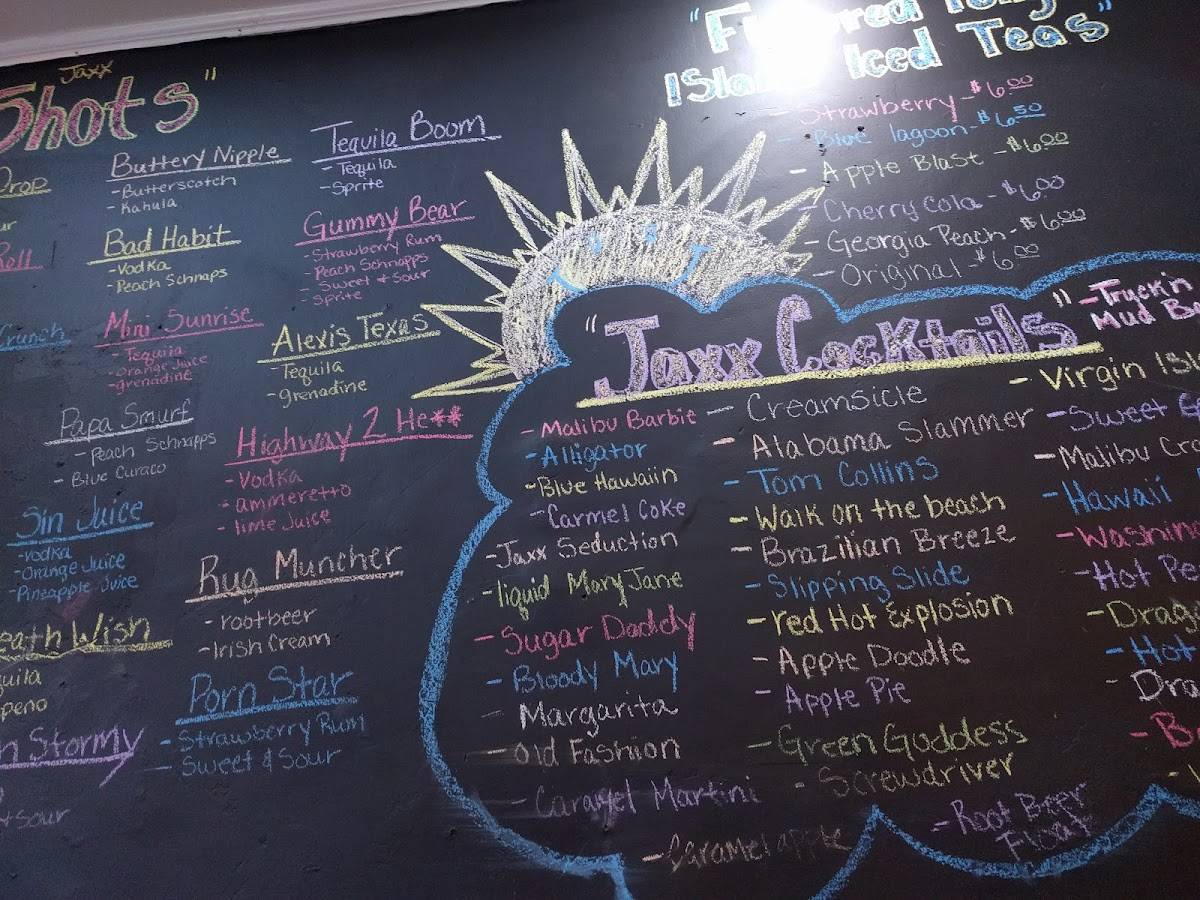 Jaxx
Shots"
Drop
Buttery Nipple
-Butterscotch
-Kahula
Bad Habit
-Vodka
-Peach Schnaps
Crunch
Mini Sunrise
-Tequila
-Orange Juice
-grenadine
Papa Smurf
-Peach Schnapps
-Blue Curaco
Sin Juice
-Vodka
-Orange Juice
-Pineapple Juice
Death Wish
Stormy
Sour
Tequila Boom
-Tequila
-Sprite
Gummy Bear
-Strawberry Rum
-Peach Schnapps
-Sweet & Sour
-Sprite
Alexis Texas
-Tequila
-grenadine
Highway 2 He**
-Vodka
-ammeretto
-lime Juice
Rug Muncher
-rootbeer
-Irish Cream
Porn Star
-Strawberry Rum
-Sweet & Sour
Iced Teas"
-Strawberry-$6.00
-Blue lagoon-$6.50
-Apple Blast-$6.00
-Cherry Cola-$6.00
-Georgia Peach-$6.00
-Original-$6.00
"Jaxx Cocktails"
-Malibu Barbie
-Alligator
-Blue Hawaiin
-Carmel Coke
-Jaxx Seduction
-liquid MaryJane
-Sugar Daddy
-Bloody Mary
-Margarita
-Old Fashion
-Caramel Martini
-Caramel apple
-Creamsicle
-Alabama Slammer
-Tom Collins
-Walk on the beach
-Brazilian Breeze
-Slipping Slide
-red Hot Explosion
-Apple Doodle
-Apple Pie
-Green Goddess
-Screwdriver
-Root Beer
Float
-Truck'n
Mud
-Virgin
-Sweet
-Malibu
-Hawaii
-Hot
-Hot